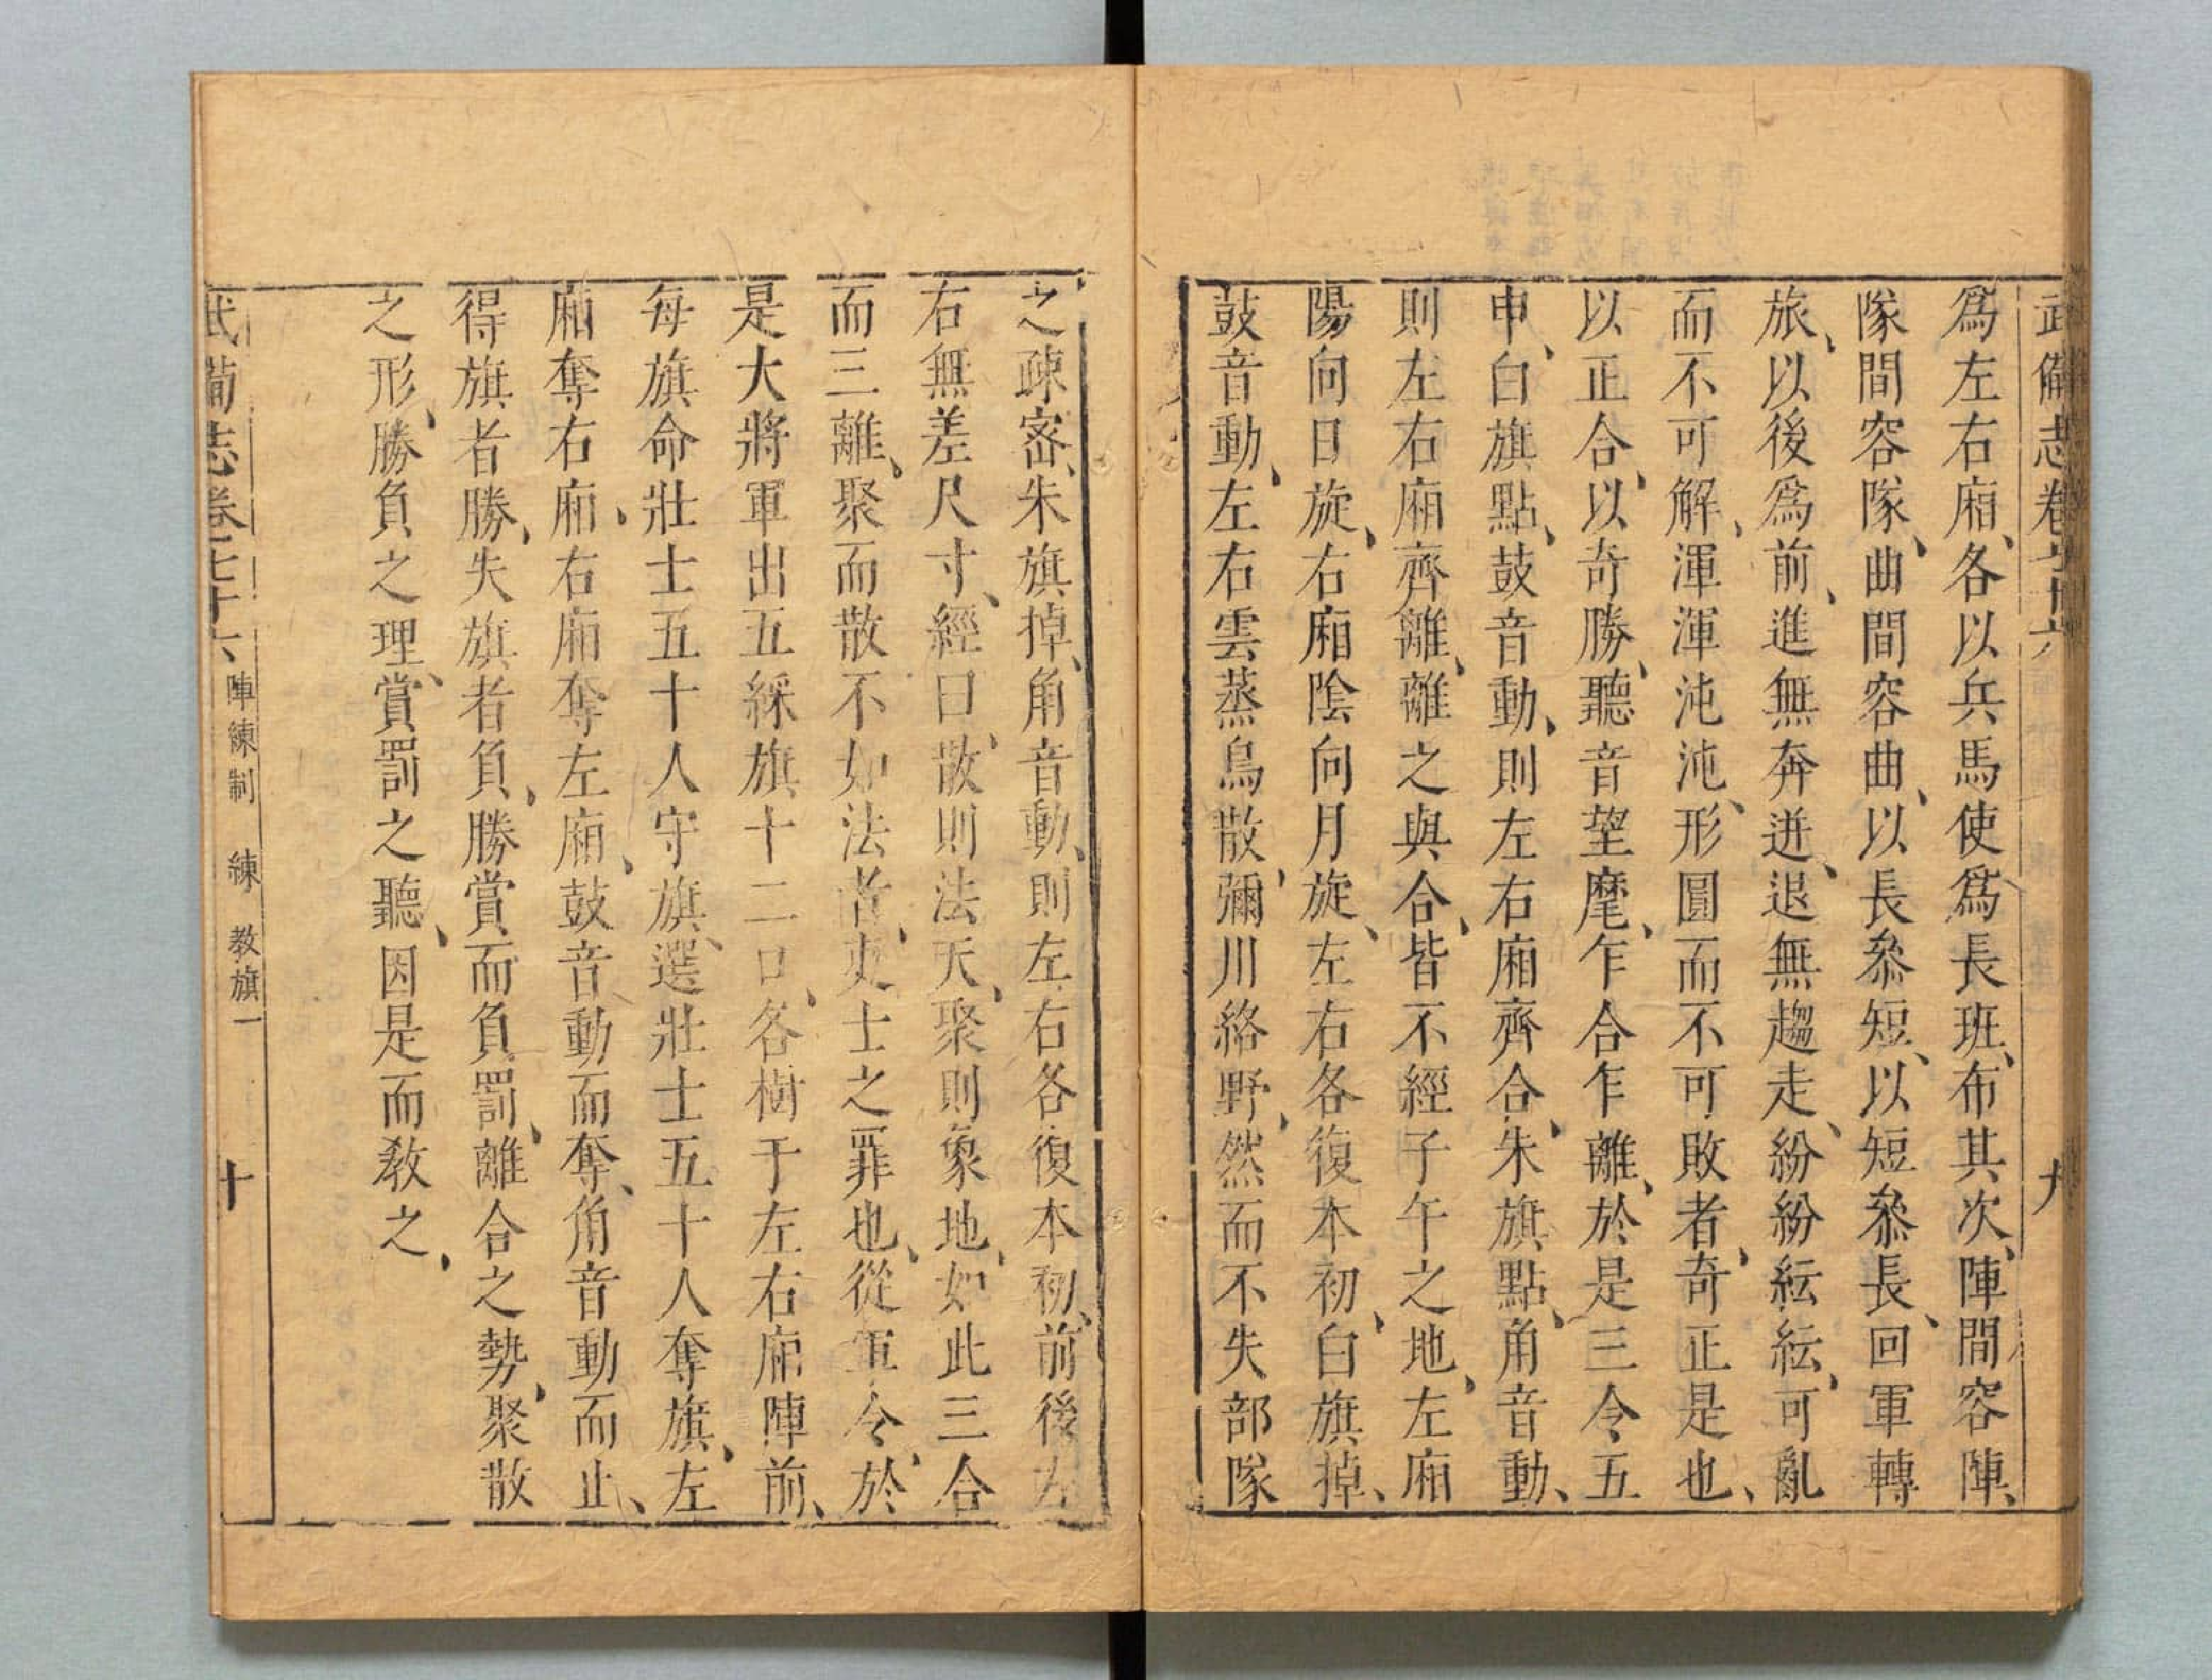 武備志卷七十六
九
爲左右廂、各以兵馬使爲長班、布其次、陣間容陣、
隊間容隊、曲間容曲、以長叅短、以短叅長、回軍轉
旅、以後爲前、進無奔迸、退無趨走、紛紛紜紜、可亂
而不可解、渾渾沌沌、形圓而不可敗者、奇正是也、
以正合、以奇勝、聽音望麾、乍合乍離、於是三令五
申、白旗點、鼓音動、則左右廂齊合、朱旗點、角音動、
則左右廂齊離、離之與合、皆不經子午之地、左廂
陽向日旋、右廂陰向月旋、左右各復本初、白旗掉、
鼓音動、左右雲蒸鳥散、彌川絡野、然而不失部隊
之疎密、朱旗掉、角音動、則左右各復本初、前後左
右無差尺寸、經曰、散則法天、聚則象地、如此三合
而三離、聚而散不如法者、吏士之罪也、從軍令、於
是大將軍出五綵旗十二口、各樹于左右廂陣前、
每旗命壯士五十人守旗、選壯士五十人奪旗、左
廂奪右廂、右廂奪左廂、鼓音動而奪、角音動而止、
得旗者勝、失旗者負、勝賞而負罰、離合之勢、聚散
之形、勝負之理、賞罰之聽、因是而教之、
武備志卷七十六 陣練制 練 教旗一
十